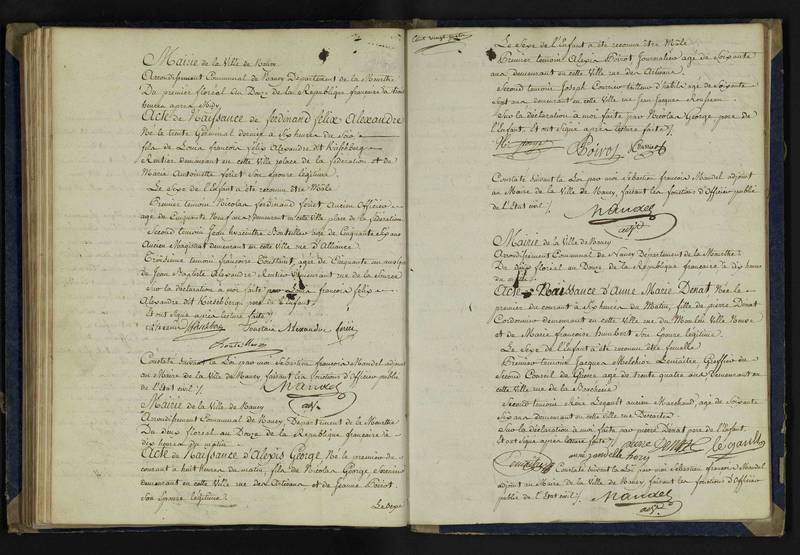 Mairie de la Ville de Nancy
Arrondissement Communal de Nancy Departement de la Meurthe
Du premier floreal du Douze de la Republique francaise à
heures apres Midy
Acte de Naissance de ferdinand felix Alexandre
Né le trente Germinal dernier à Six heures du Soir
fils de Louis francois felix Alexandre dit Kirschberg
Rentier demeurant en cette Ville place de la federation et de
Marie Antoinette foriet Son Epouse legitime
Le Sexe de l'Enfant a été reconnu être Mâle
Premier temoin Nicolas ferdinand foriet ancien Officier
agé de Cinquante Neuf ans demeurant en cette Ville place de la federation
Second temoin Jean hiacinthe agé de Cinquante Six ans
Ancien Magistrat demeurant en cette Ville rue d'Alliance
Troisieme temoin francoise agée de Cinquante un ans
de Jean Baptiste Alexandre Rentier demeurant rue de la Source
Sur la déclaration à moi faite par Louis francois felix
Alexandre dit Kirschberg pere de l'Enfant
Et ont Signé après lecture faite
Alexandre foriet
Constaté suivant la Loi par moi Sebastien francois Mandel adjoint
au Maire de la Ville de Nancy faisant les fonctions d'Officier public
de l'Etat civil
Mandel
adjt
Mairie de la Ville de Nancy
Arrondissement Communal de Nancy, Departement de la Meurthe
Du deux floreal au Douze de la Republique francaise à
dix heures du matin
Acte de Naissance d'Alexis George, Né le premier du
courant à huit heures du matin, fils de Nicolas George
demeurant en cette Ville rue des Artisans et de Jeanne Poirot
Son Epouse légitime
Le Sexe
Cent vingt
Le Sexe de l'Enfant a été reconnu être Mâle
Premier temoin Alexis Poirot Journalier agé de Soixante
ans demeurant en cette Ville rue des Artisans
Second temoin Joseph tailleur d'habits agé de Soixante
Sept ans demeurant en cette Ville rue Jean Jacques Rousseau
Sur la déclaration à moi faite par Nicolas George pere de
l'Enfant. Et ont Signé après lecture faite
Poirot
Constaté suivant la Loi par moi Sébastien francois Mandel adjoint
au Maire de la Ville de Nancy, faisant les fonctions d'Officier public
de l'Etat civil
Mandel
adjt
Mairie de la Ville de Nancy
Arrondissement Communal de Nancy Departement de la Meurthe
Du deux floreal au Douze de la Republique francaise à dix heures
du matin
Acte de Naissance d'Anne Marie Denat Née le
premier du courant à Six heures du Matin, fille de pierre Denat
Cordonnier demeurant en cette Ville rue du Moulin Ville Neuve
et de Marie francoise humbert Son Epouse légitime
Le Sexe de l'Enfant a été reconnu être femelle
Premier temoin Jacques Melchior Lemaitre Greffier du
Second Conseil de Guerre agé de trente quatre ans demeurant en
cette Ville rue de la
Second temoin René Legault ancien Marchand, agé de Soixante
Six ans demeurant en cette Ville rue Descartes
Sur la déclaration à moi faite par pierre Denat pere de l'Enfant
Et ont Signé après lecture faite
pierre
Constaté suivant la Loi par moi Sébastien francois Mandel
adjoint au Maire de la Ville de Nancy faisant les fonctions d'Officier
public de l'Etat civil
Mandel
adjt